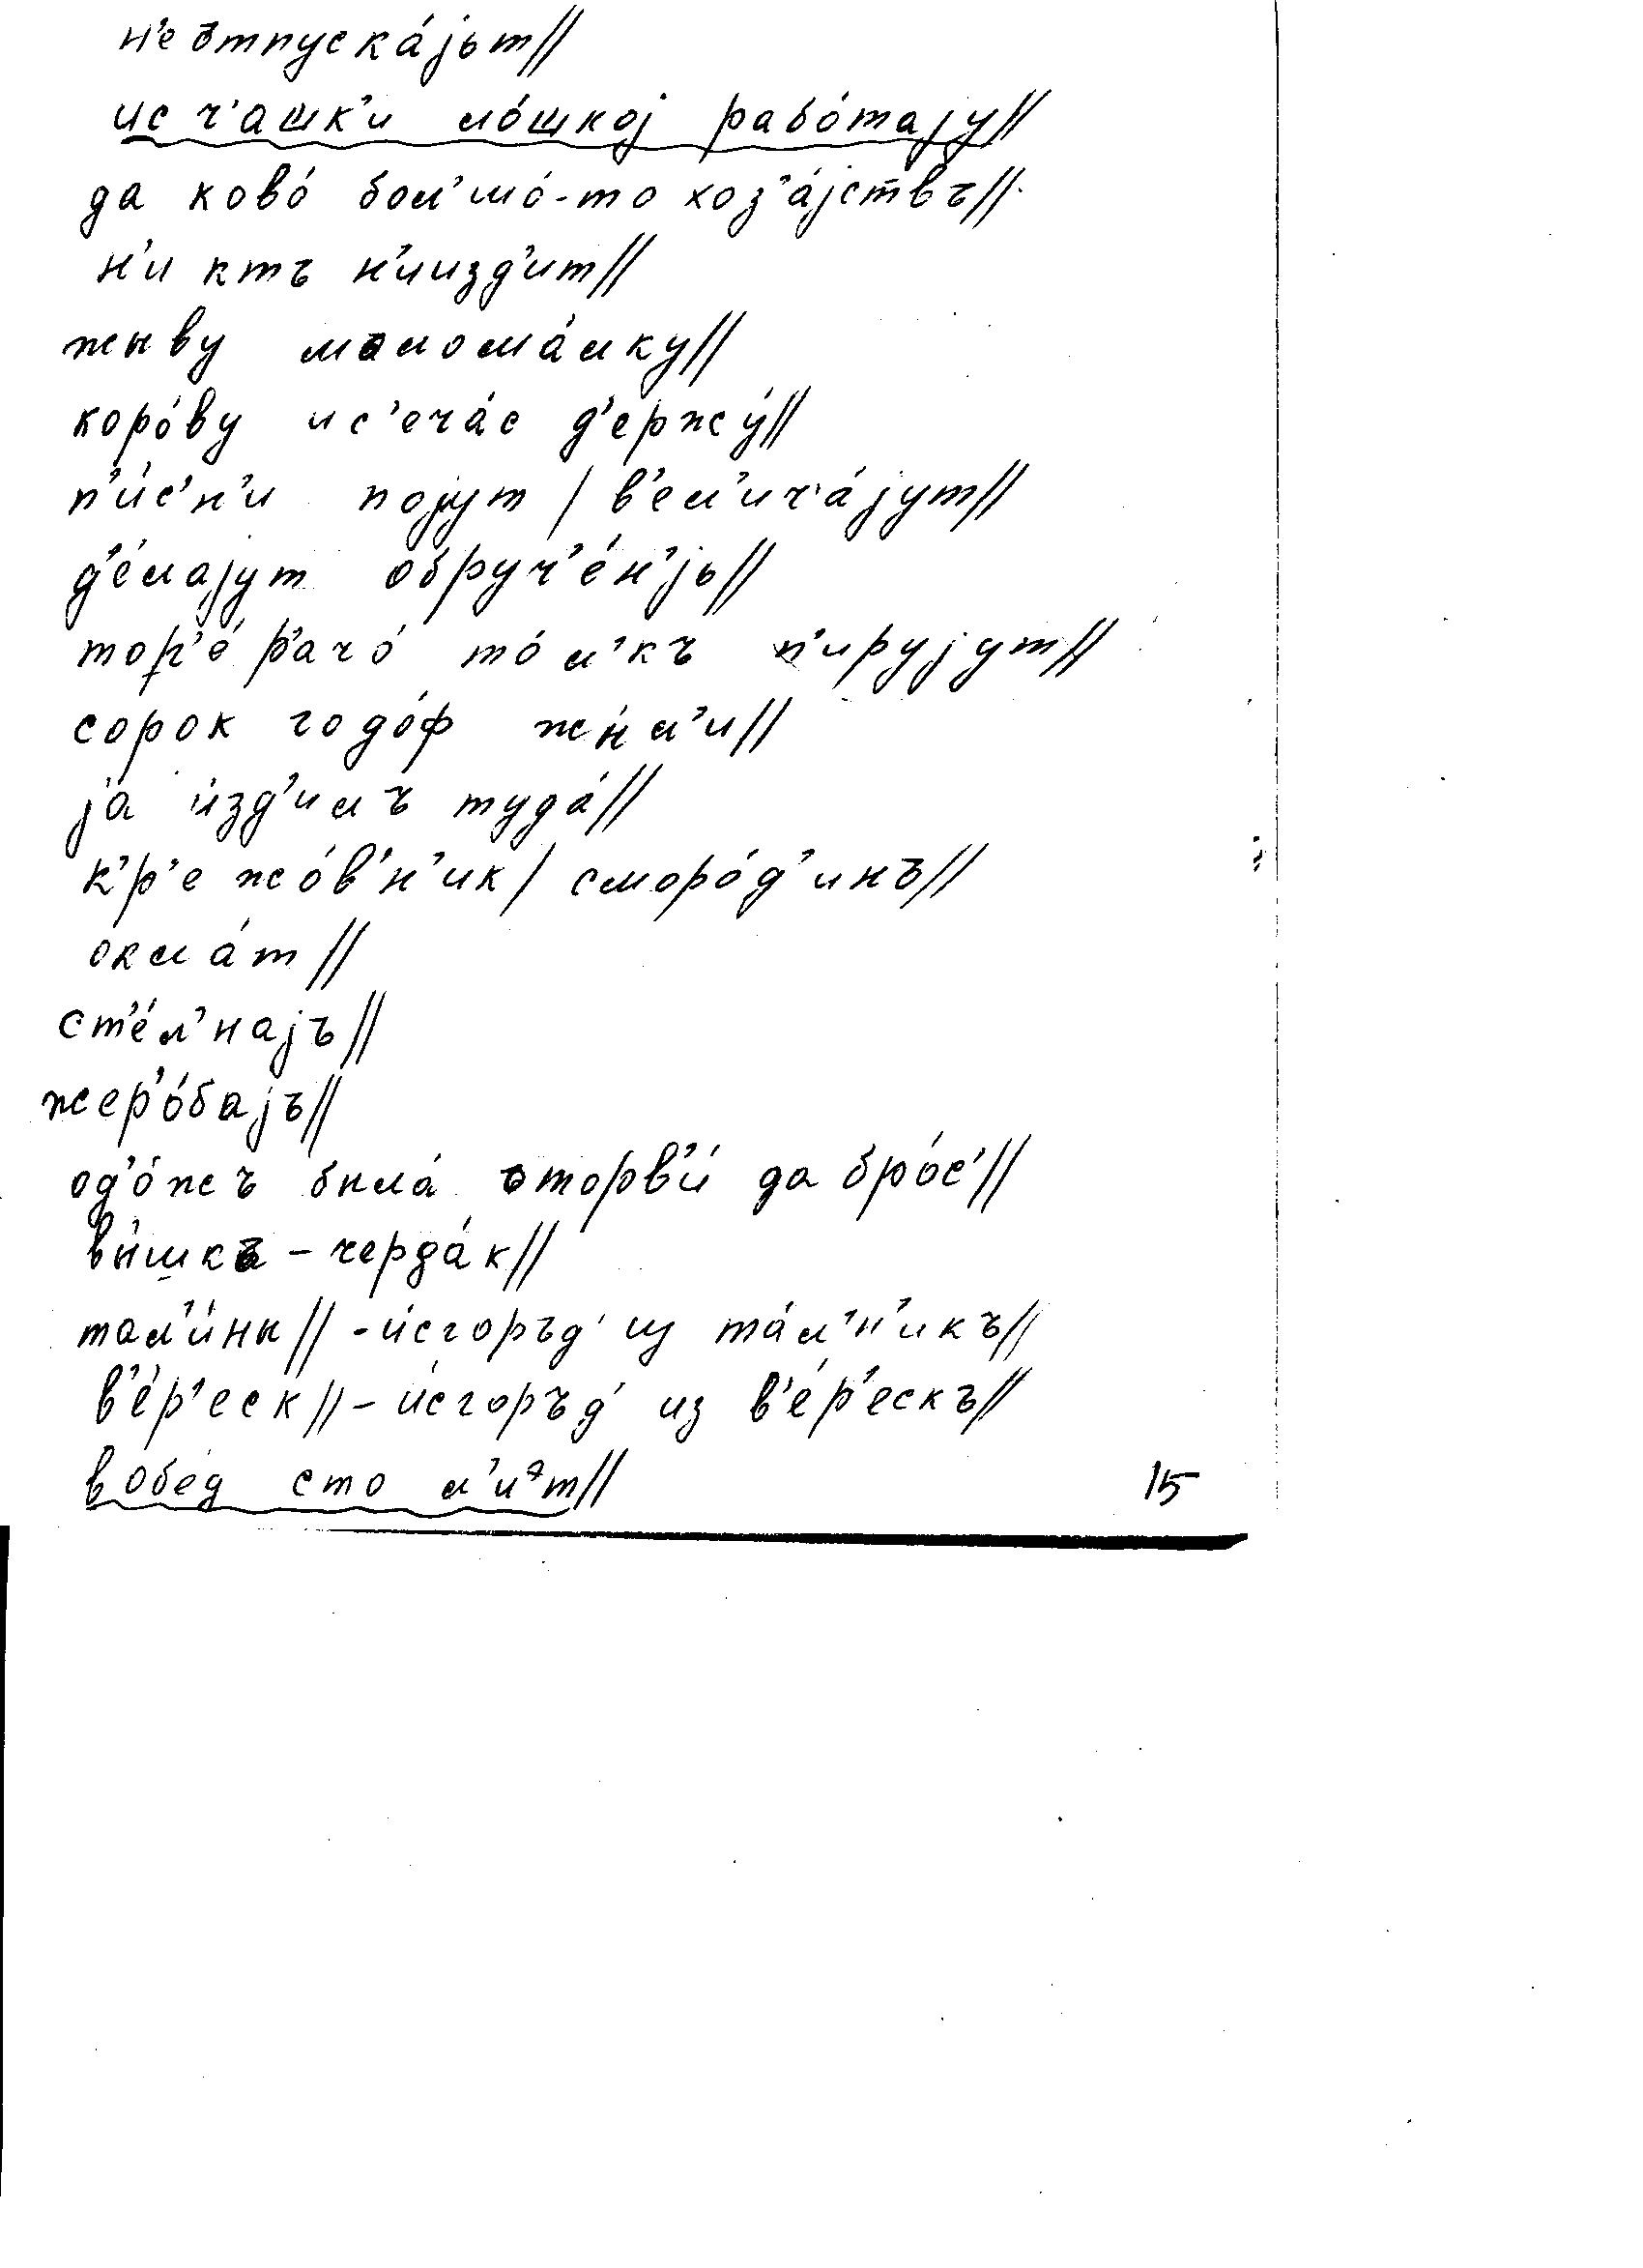 н'еътпуска́јьт//
ис ч'ашк'и ло́шкој рабо́тају//
да ково́ бол'шо́-то хоз'а́јствъ//
н'и ктъ н'иизд'ит//
жыву маломáлку//
коро́ву ис'еча́с д'ержу́//
п'и́с'н'и појут / в'ел'ич'а́јут//
д'е́лајут обруч'е́н'јь//
тоṕе́ р'ачо́ то́л'къ п'ирујут//
сорок годо́ф жы́л'и//
ја́ и́зд'илъ туда́//
к'р'ежо́в'н'ик / сморо́д'инъ//
окла́т//
ст'е́л'најъ//
жер'о́бајъ//
од'о́жъ была́ оторв'и́ да бро́с'//
вы́шкъ – черда́к//
тал'и́ны// - и́сгоръд' из та́л'н'икъ//
в'е́р'еск// – и́сгоръд' из в'е́р'ескъ//
вобед сто л'иᵊт// 15